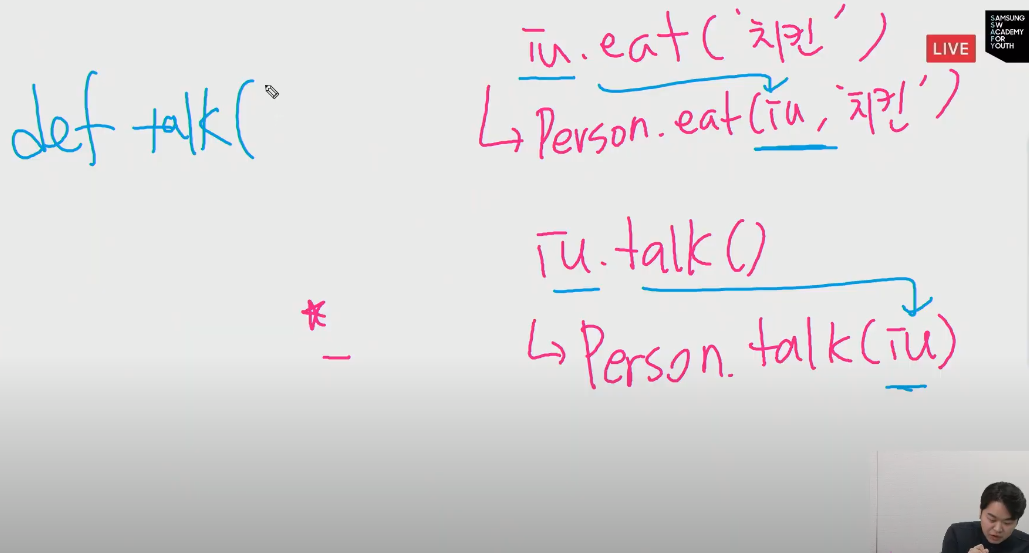 def talk(
iu.eat('치킨')
↳ Person.eat(iu, '치킨')
iu.talk()
↳ Person.talk(iu)
*
_
LIVE
SAMSUNG
SW
ACADEMY
FOR
YOUTH